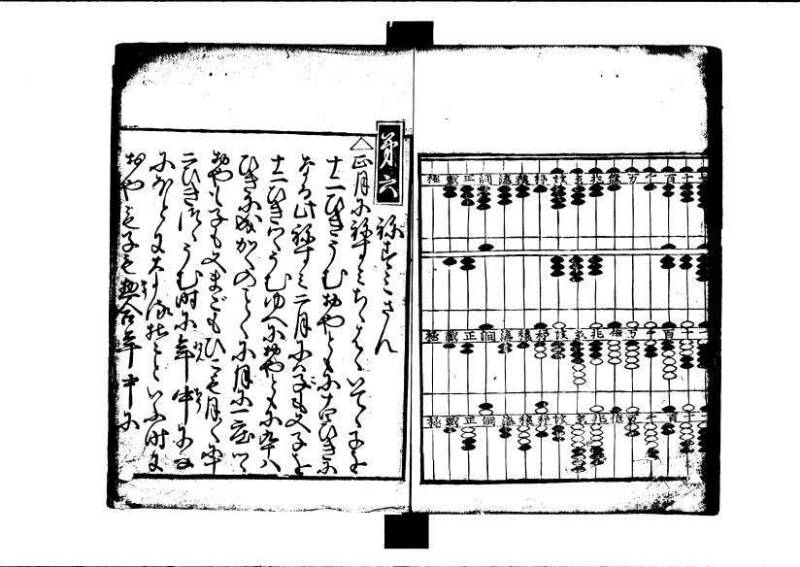 十百千万億兆京垓秭穰溝澗正載極
十百千万億兆京垓秭穰溝澗正載極
十百千万億兆京垓秭穰溝澗正載極
第六 ねずみさん
△正月にねずみちちはゝいでゝ子を
十二ひきうむおやともに十四ひきに
なる此ねずみ二月には子も又子を
十二ひきづゝうむゆへにおやともに九十八
ひきに成かくのごとくに月に一度づゝ
おやも子も又まごもひこも月々に
二ひきづゝうむ時に年中に
なにほどに といふ時に
おやも子も惣合年中に